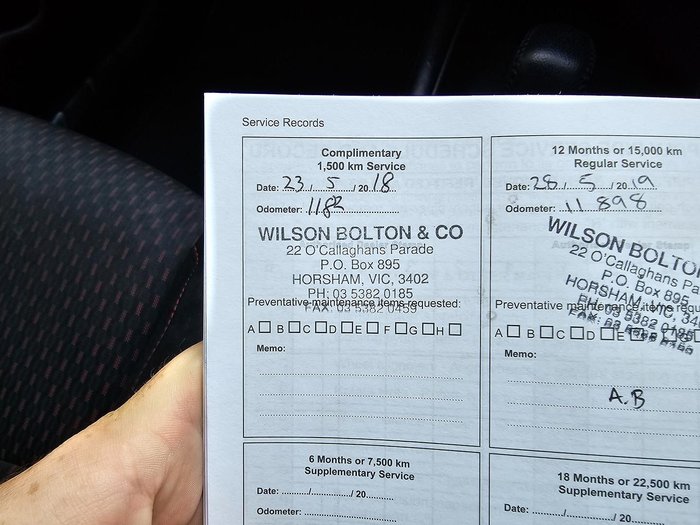 Service Records
Complimentary
1,500 km Service
Date: 23 / 5 / 20 18
Odometer: 1182
WILSON BOLTON & CO
22 O'Callaghans Parade
P.O. Box 895
HORSHAM, VIC, 3402
PH: 03 5382 0185
FAX: 03 5382 0459
Preventative maintenance items requested:
A B C D E F G H
Memo:
6 Months or 7,500 km
Supplementary Service
Date: ........../........../ 20..........
Odometer: ..........
12 Months or 15,000 km
Regular Service
Date: 28 / 5 / 20 19
Odometer: 11 898
WILSON BOLTO
22 O'Callaghans Pa
P.O. Box 895
HORSHAM, VIC, 34
PH: 03 5382 0185
Preventative maintenance items requ
A B C D E
Memo:
A.B
18 Months or 22,500 km
Supplementary Service
Date: ........../........../ 20